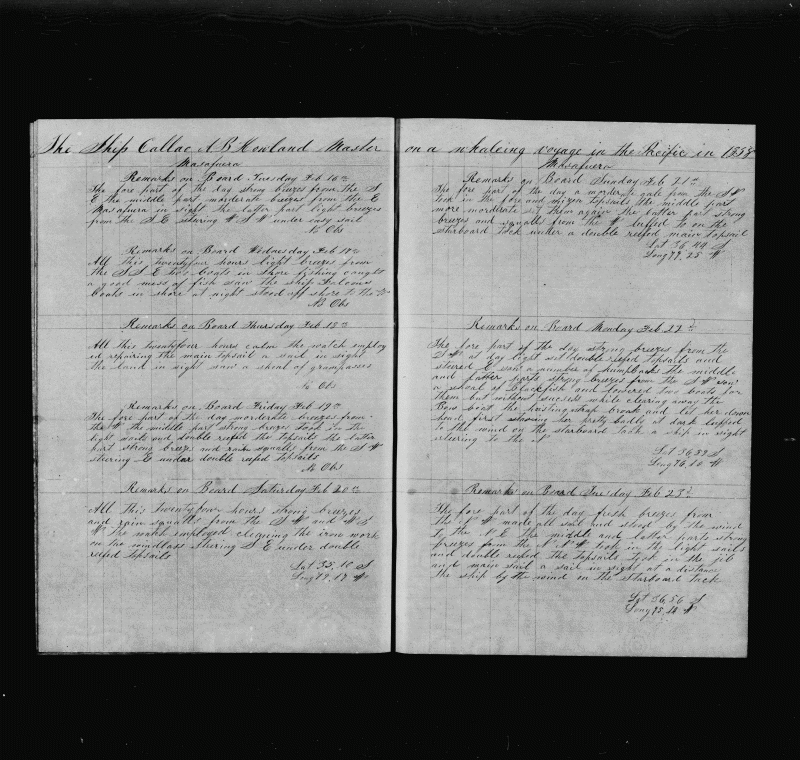 The Ship Callao A B Howland Master
Masafuera
Remarks on Board Tuesday Feb 16th
The fore part of the day strong breezes from the S
E the middle part morderate breezes from the E
Masafuera in sight the latter part light breezes
from the S.E stearing W.S.W under easy sail
No Obs
Remarks on Board Wednesday Feb 17th
All this twentyfour hours light breezes from
the S S E two boats in shore fishing caught
a good mess of fish saw the ship Falcons
boats in shore at night stood off shore to the
No Obs
Remarks on Board Thursday Feb 18th
All this twentyfour hours calm the watch employ
ed repairing the main topsail a sail in sight
the land in sight saw a sheal of grampuses
No Obs
Remarks on Board Friday Feb 19th
The fore part of the day morderate breezes from
the W the middle part strong breezes took in the
light sails and double reefed the topsails the latter
part strong breezes and rain squalls from the S W
stearing E under double reefed topsails
No Obs
Remarks on Board Saturday Feb 20th
All this twentyfour hours strong breezes
and rain squalls from the S W and W S
W the watch employed cleaning the iron work
on the windlass stearing S E under double
reefed topsails
Lat 35,10 S
Long 79,17 W
on a whaleing voyage in the Pacific in 1858
Masafuera
Remarks on Board Sunday Feb 21st
The fore part of the day a morderate gale from the S W
took in the fore and mizen topsails the middle part
more morderate set them again the latter part strong
breezes and squalls from the W luffed to on the
starboard tack under a double reefed main topsail
Lat 36,49 S
Long 77,25 W
Remarks on Board Monday Feb 22nd
The fore part of the day strong breezes from the
S W at day light set double reefed topsails and
steared E saw a number of humpbacks the middle
and latter parts strong breezes from the S W saw
a shoal of blackfish and lowered two boats for
them but without success while clearing away the
Bow boat the hoisting strap broak and let her down
head first staveing her pretty badly at dark luffed
to the wind on the starboard tack a ship in sight
stearing to the
Lat 36,33 S
Long 76,10 W
Remarks on Board Tuesday Feb 23d
The fore part of the day fresh breezes from
the N W made all sail and stood by the wind
to the N E the middle and latter parts strong
breezes from the N N W took in the light sails
and double reefed the topsails took in the jib
and main sail a sail in sight at a distance
the ship by the wind in the starboard tack
Lat 36,56 S
Long 75,10 W